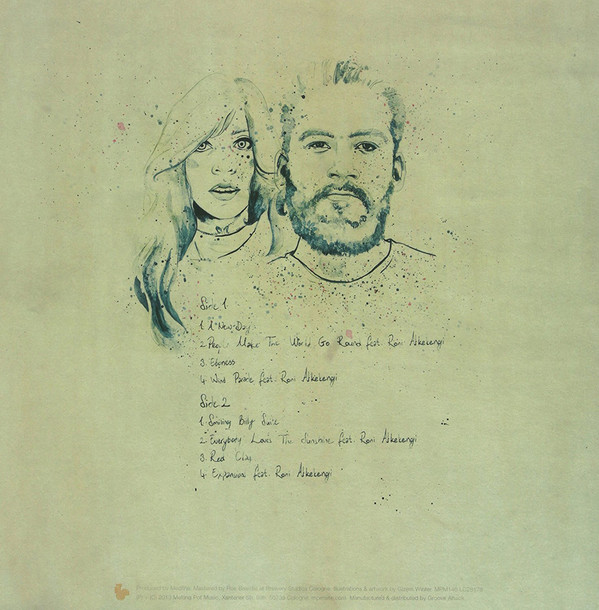 Side 1
1. A New Day
2. People Make The World Go Round feat. Romi Alkelengi
3. Essness
4. Wind Parade feat. Romi Alkelengi
Side 2
1. Smiling Billy Suite
2. Everybody Loves The Sunshine feat. Romi Alkelengi
3. Red Clay
4. Expansions feat. Romi Alkelengi
Produced by Mastered by at Cologne. Illustrations & artwork by
Music, Manufactured & distributed by Groove Attack